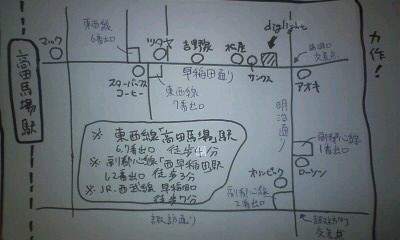 力作!
diglight
東西線
6番出口
マック
ツタヤ
吉野家
松屋
サンクス
交差点
高田馬場駅
スターバックス
コーヒー
早稲田通り
東西線
7番出口
明治通り
アオキ
※ 東西線「高田馬場」駅
6,7番出口 徒歩4分
※ 副都心線「西早稲田」駅
1,2番出口 徒歩3分
※ JR、西武線 早稲田口
徒歩7分
副都心線
1番出口
ローソン
オリンピック
副都心線
2番出口
諏訪通り
交差点